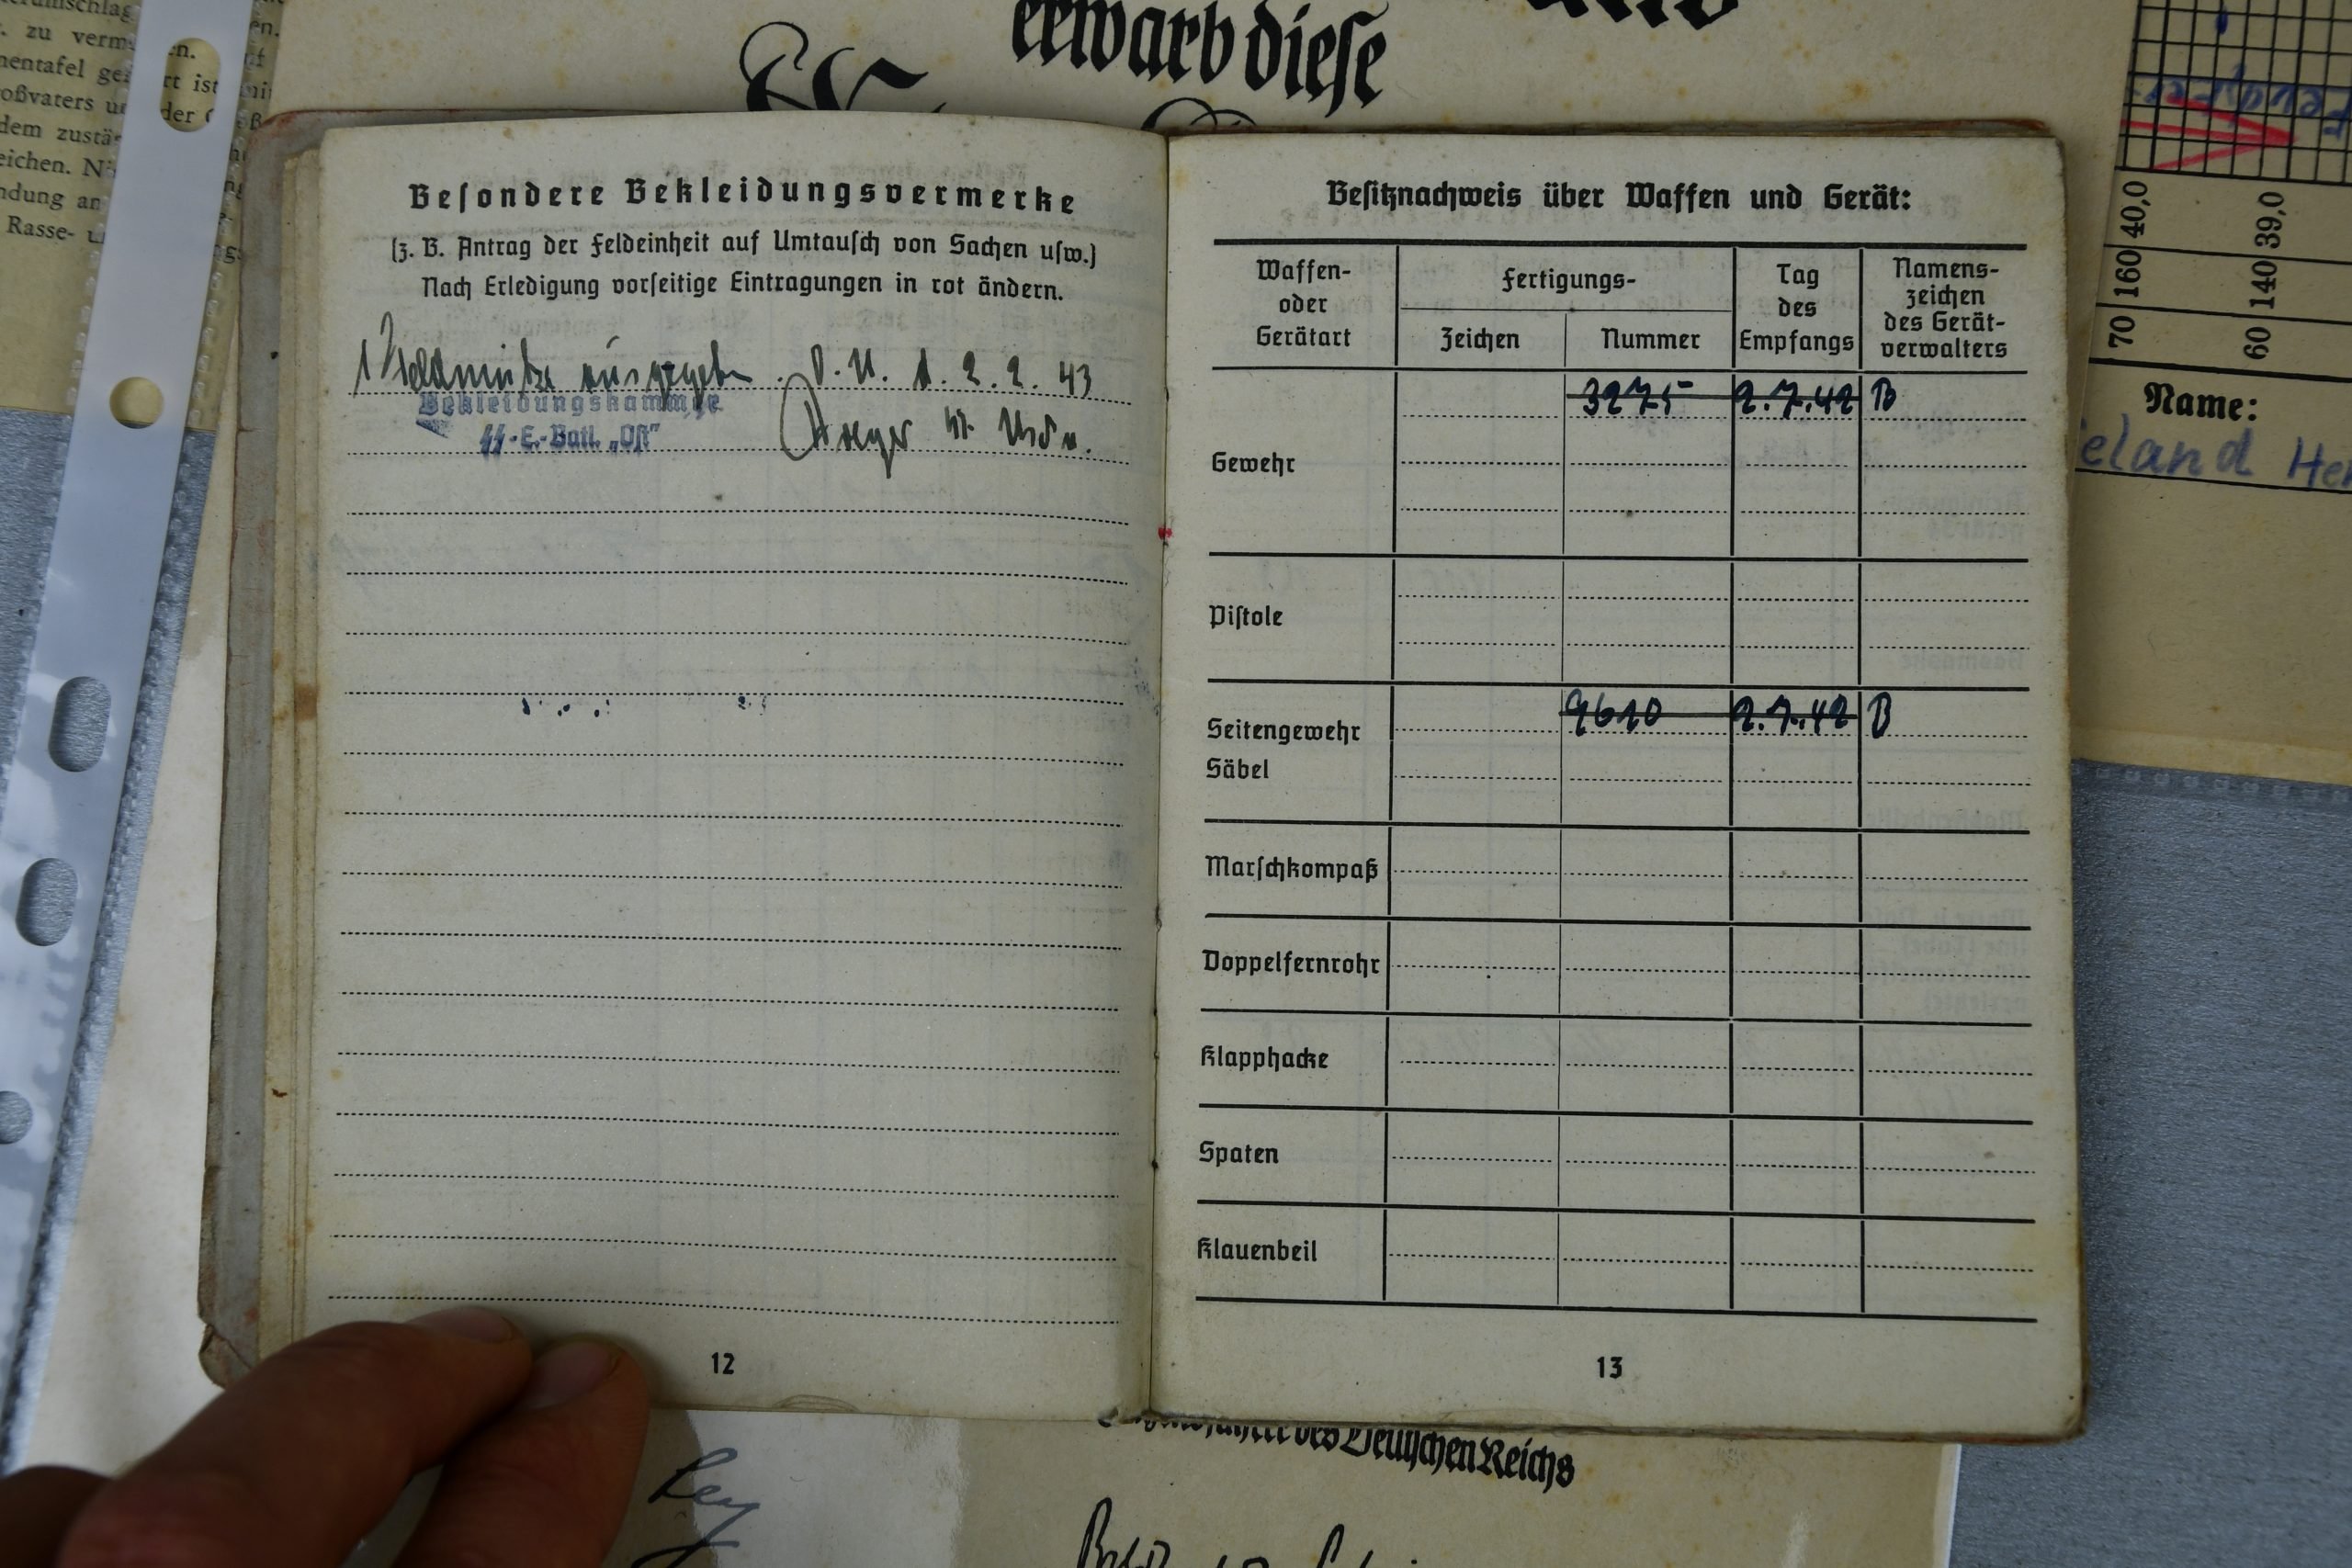 erwarb diese
zu verm
en.
nentafel
rt ist
oßvaters
der
dem
eichen.
ndung an
Rasse-
Besondere Bekleidungsvermerke
(z. B. Antrag der Feldeinheit auf Umtausch von Sachen usw.)
Nach Erledigung vorseitige Eintragungen in rot ändern.
1 Feldmütze ausgegeben. O. U. d. 2. 2. 43
Bekleidungskammer
SS-E.-Batl. „Ost"
12
Besitznachweis über Waffen und Gerät:
Waffen- oder Gerätart
Fertigungs-
Zeichen
Nummer
Tag des Empfangs
Namens-zeichen des Gerät-verwalters
Gewehr 3275 2.7.42 B
Pistole
Seitengewehr 9610 2.7.42 B
Säbel
Marschkompaß
Doppelfernrohr
Klapphacke
Spaten
Klauenbeil
13
40,0
39,0
160
140
70
60
Name:
eland Her
des Deutschen Reichs